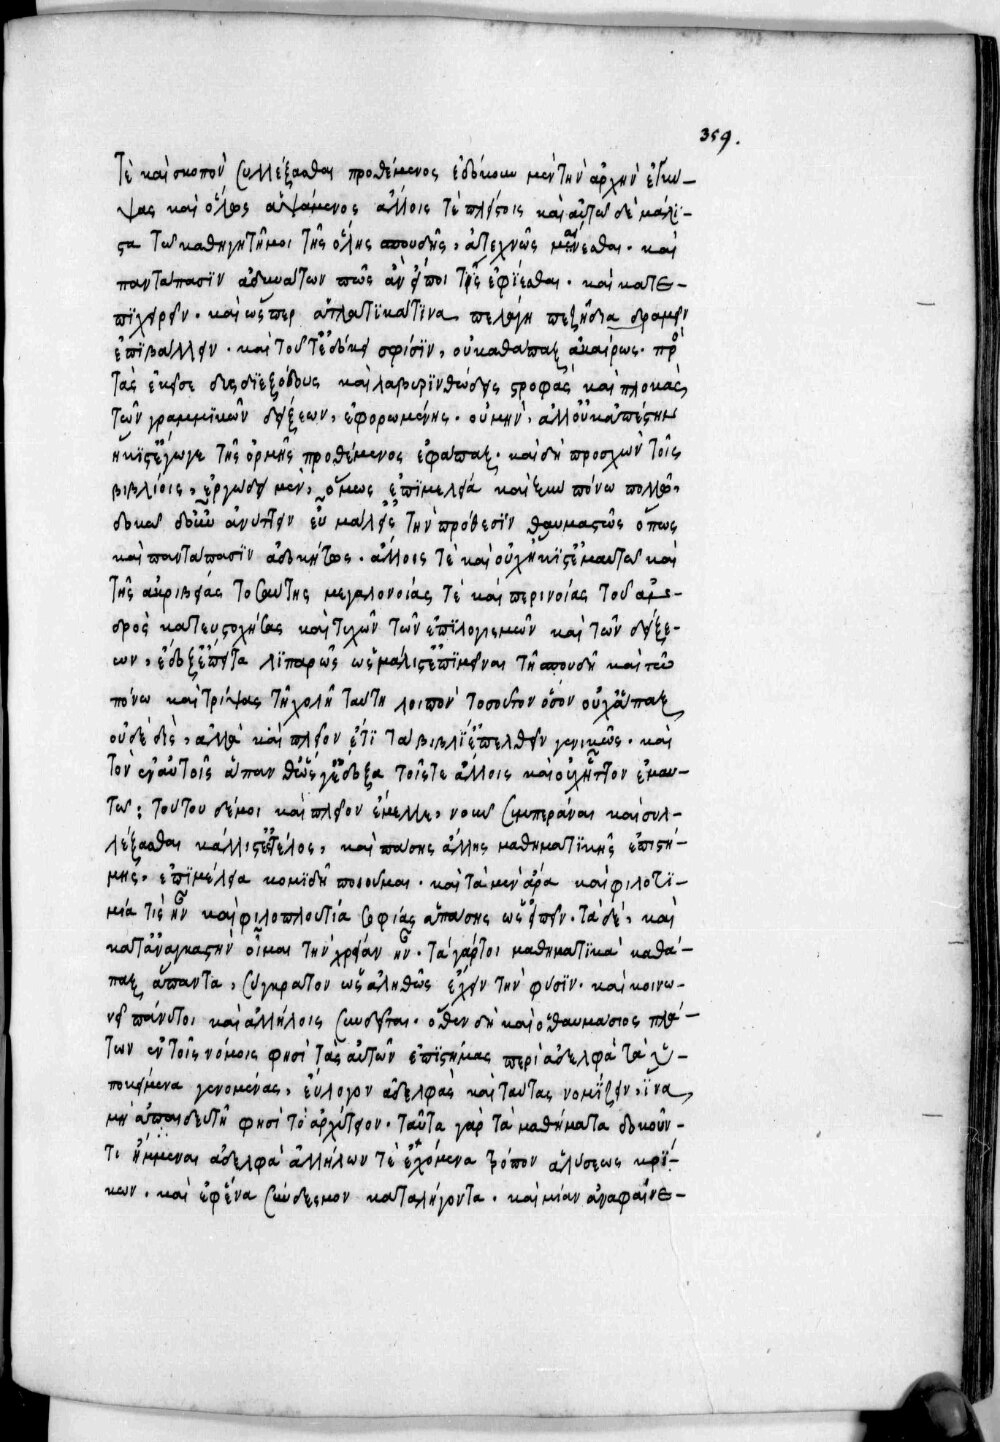 359.
τὲ καὶ σκοπὸν συλλέξασθαι προθέμενος ἐδόκουν μὲν τὴν ἀρχὴν ἐγκύ-
ψας καὶ ὅλως ἁψάμενος ἄλλοις τὲ πλείστοις καὶ αὐτῶ δὲ μάλι-
στα τῶ καθηγητῆ μοι τῆς ὅλης σπουδῆς, ἀτεχνῶς μαίνεσθαι. καὶ
παντάπασϊν ἀδυνάτων πῶς ἂν εἴποι τϊς ἐφίεσθαι. καὶ κατε-
πϊχειρεῖν. καὶ ὥσπερ ἀπλατϊκά τϊνα πελάγη πεζῆ διαδραμεῖν
ἐπϊβάλλειν. καὶ τοῦτ' ἐδόκει σφίσϊν, οὐ καθάπαξ ἀκαίρως. πρὸς
τὰς ἐκεῖσε δυσδϊεξόδους καὶ λαβυρϊνθώδεις στροφὰς καὶ πλοκὰς
τῶν γραμμϊκῶν δείξεων, ἐφορωμένης. οὐ μὴν, ἀλλ' οὐκ ἀπέστην
ἥκιστ' ἔγωγε τῆς ὁρμῆς προθέμενος ἐφάπαξ. καὶ δὴ προσχὼν τοῖς
βιβλίοις, ἐργώδει μὲν, ὅμως ἐπϊμελεία καὶ ξὺν πόνω πολλῶ,
δοκῶ ἀνύττειν εὖ μάλ' ἐς τὴν πρόθεσϊν θαυμαστῶς ὅπως
καὶ παντάπασϊν ἀδοκήτως. ἄλλοις τὲ καὶ οὐχ ἥκιστ' ἐμαυτῶ καὶ
τῆς ἀκριβείας τοσαύτης μεγαλονοίας τὲ καὶ περινοίας τοῦ ἀν-
δρὸς κατευστοχήσας καὶ τυχὼν τῶν ἐπϊλογισμῶν καὶ τῶν δείξε-
ων, ἔδοξ' ἔπειτα λϊπαρῶς ὡς μάλιστ' ἐπϊμεῖναι τῆ σπουδῆ καὶ τῶ
πόνω καὶ τρίψας τῆ σχολῆ ταύτη λοιπὸν τοσοῦτον ὅσον οὐχ ἅπαξ
οὐδὲ δὶς, ἀλλὰ καὶ πλεῖον ἔτϊ τὰ βιβλί' ἐπελθεῖν γενικῶς. καὶ
τὸν ἐν αὐτοῖς ἅπανθ' ὥς γ' ἔδοξα τοῖς τε ἄλλοις καὶ οὐχ ἧττον ἐμαυ-
τῶ; τούτου δέ μοι καὶ πλεῖον ἔμελλε, νοῦν συμπερᾶναι καὶ συλ-
λέξασθαι κάλλιστ' ἐς τέλος, καὶ πάσης ἄλλης μαθηματϊκῆς ἐπϊστή-
μης, ἐπϊμέλεια κομϊδῆ ποιοῦμαι. καὶ τὰ μὲν ἄρα καὶ φιλοτϊ-
μία τὶς ἦν καὶ φιλοπλουτία σοφίας ἁπάσης ὡς εἰπεῖν. τὰ δὲ, καὶ
κατ' ἀνάγκας ἦν οἶμαι τὴν χρείαν ἦν. τὰ γάρ τοι μαθηματϊκὰ καθά-
παξ ἅπαντα, σύγκρατον ὡς ἀληθῶς ἔχειν τὴν φύσϊν. καὶ κοινω-
νεῖ πάντοι καὶ ἀλλήλοις συνδεῖται. ὅθεν δὴ καὶ ὁ θαυμάσιος πλά-
των ἐν τοῖς νόμοις φησὶ τὰς αὐτῶν ἐπϊστήμας περὶ ἀδελφὰ τὰ ὑ-
ποκείμενα γενομένας, εὔλογον ἀδελφὰς καὶ ταύτας νομίζειν, ἵνα
μὴ ἀπαιδευτῆ φησὶ τὸ ἀρχέτυπον. ταῦτα γὰρ τὰ μαθήματα δοκοῦν-
τι ἤμμεναι ἀδελφὰ ἀλλήλων τὲ ἐχόμενα τρόπον ἁλύσεως κρϊ-
κων. καὶ ἐφ' ἕνα σύνδεσμον καταλήγοντα. καὶ μίαν ἀναφαίνε-